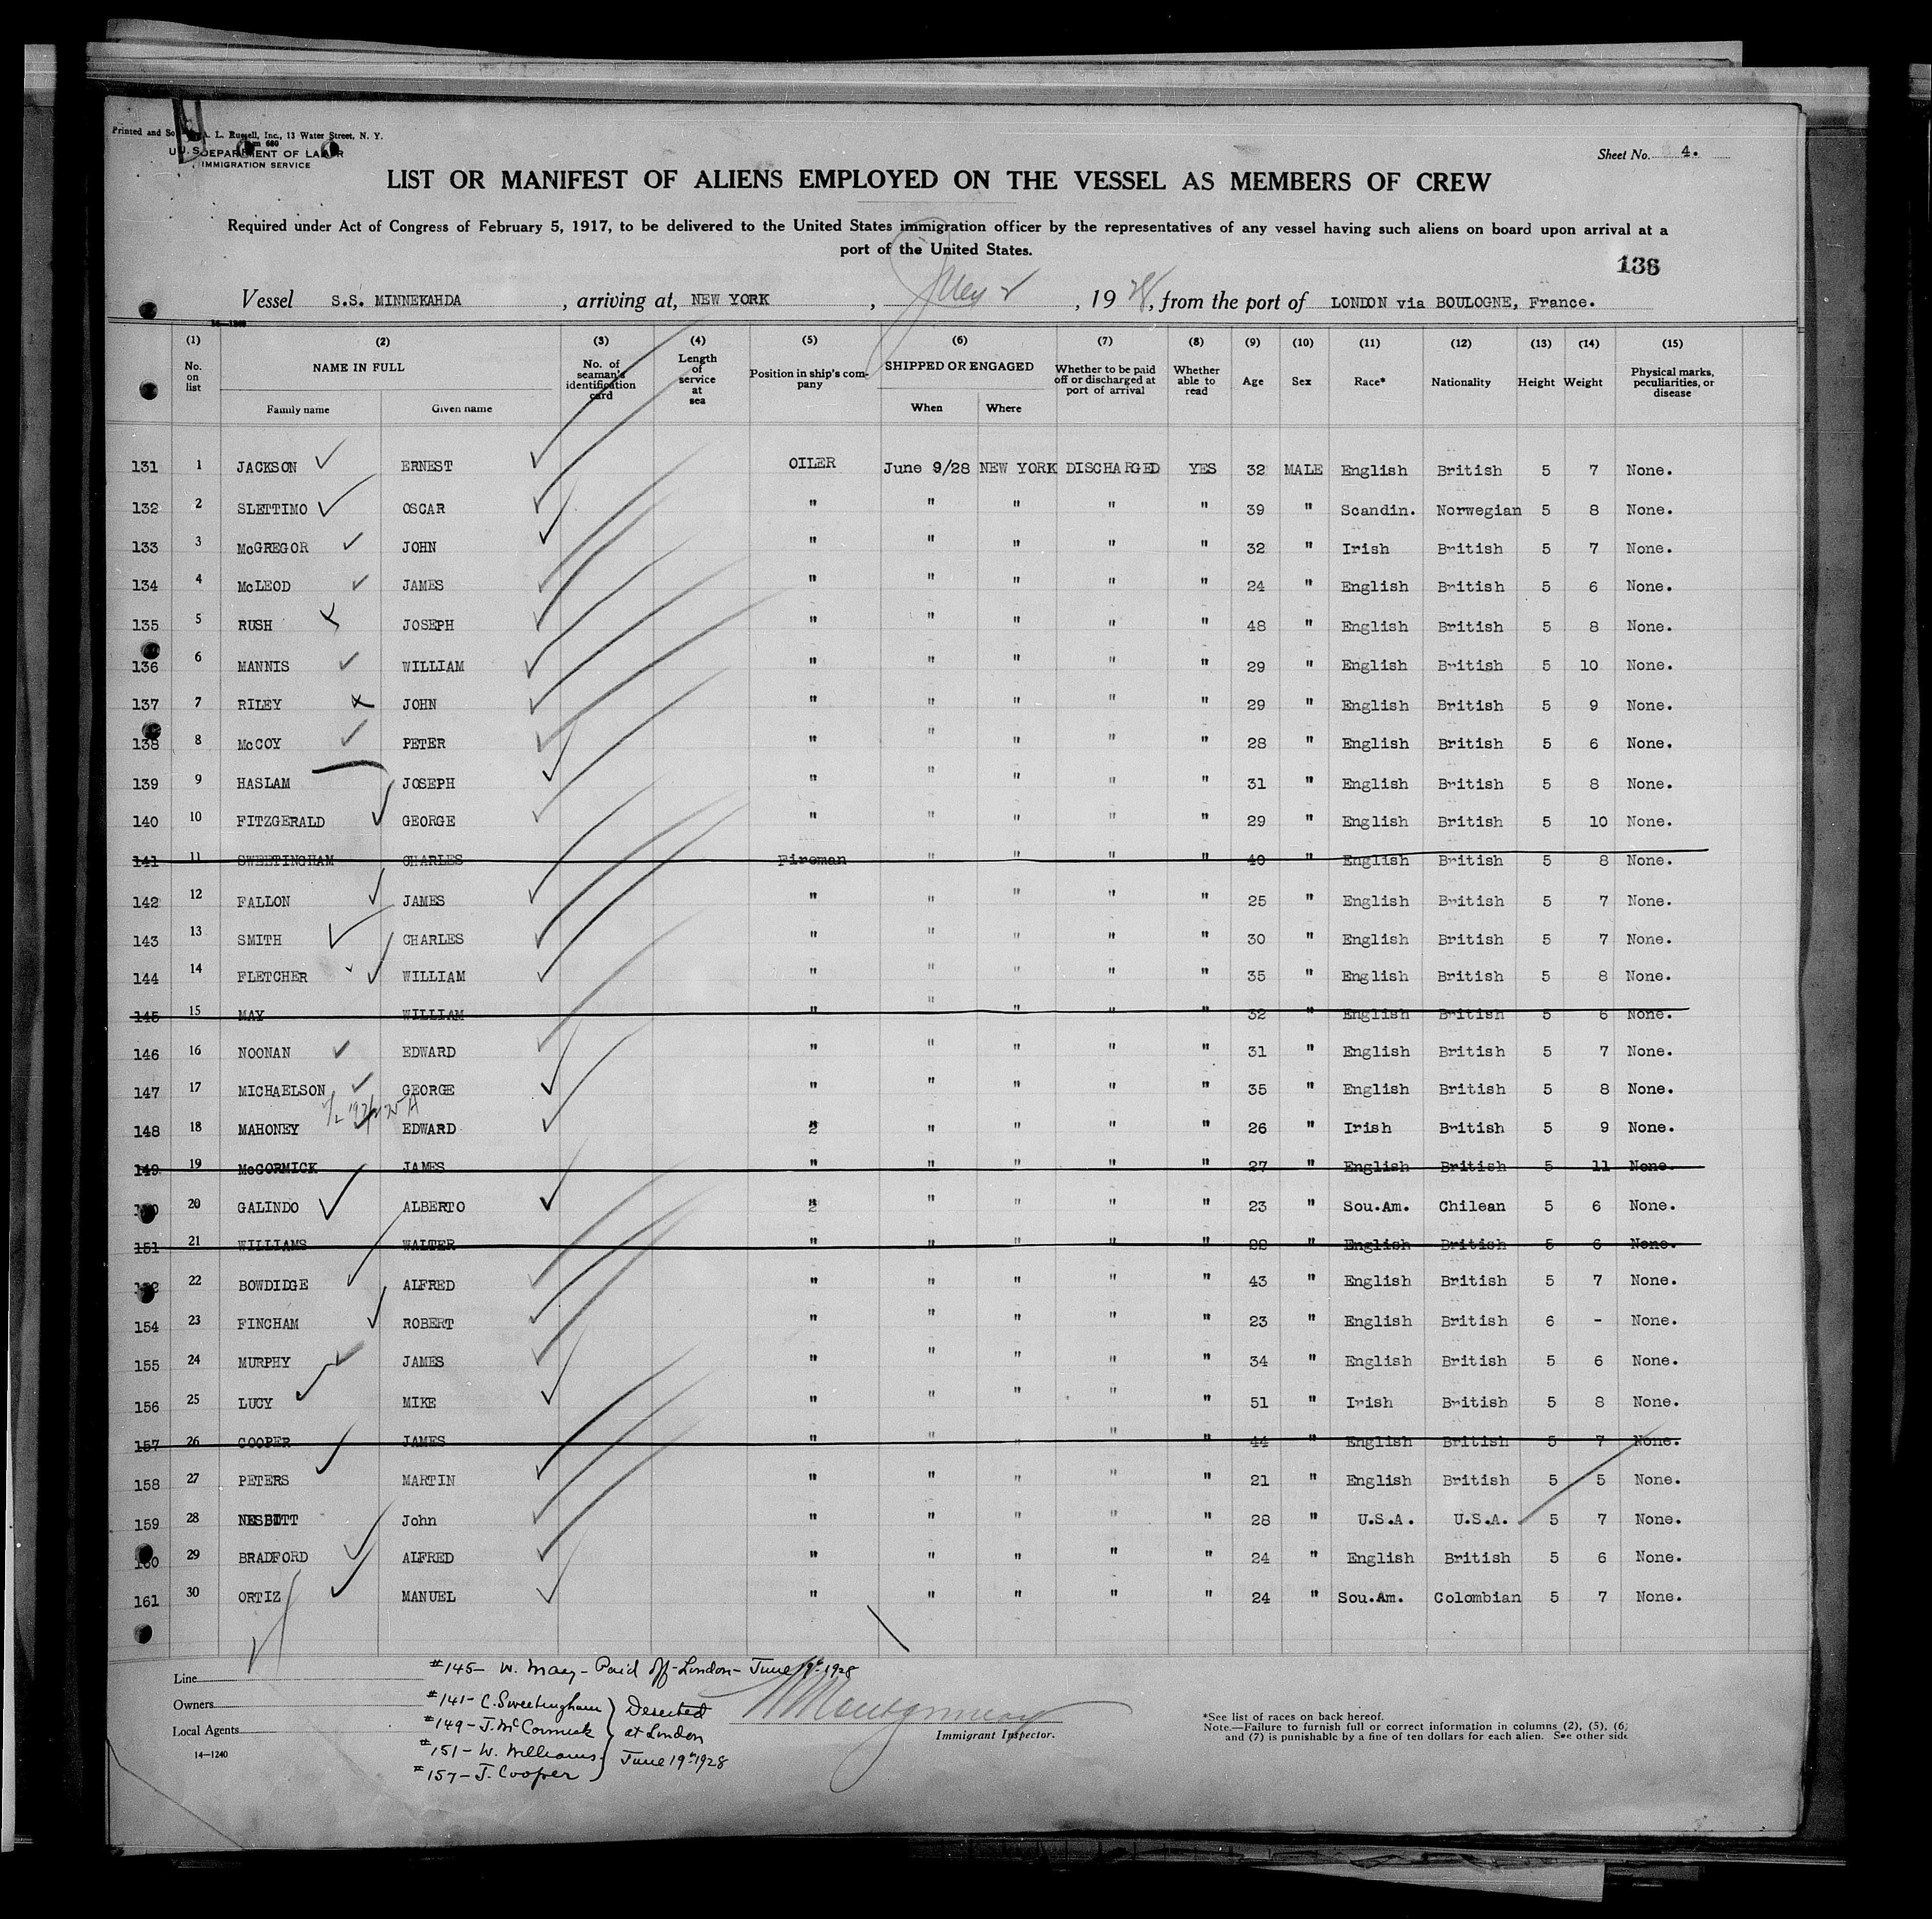 Printed and So A. L. Russell, Inc., 13 Water Street, N. Y.
680
U. S. DEPARTMENT OF LABOR
IMMIGRATION SERVICE
Sheet No. 4.
LIST OR MANIFEST OF ALIENS EMPLOYED ON THE VESSEL AS MEMBERS OF CREW
Required under Act of Congress of February 5, 1917, to be delivered to the United States immigration officer by the representatives of any vessel having such aliens on board upon arrival at a
port of the United States.
136
Vessel S.S. MINNEKAHDA , arriving at, NEW YORK , July 2 , 19 28, from the port of LONDON via BOULOGNE, France.
(1) (2) (3) (4) (5) (6) (7) (8) (9) (10) (11) (12) (13) (14) (15)
No. on list NAME IN FULL Family name Given name No. of seaman's identification card Length of service at sea Position in ship's company SHIPPED OR ENGAGED When Where Whether to be paid off or discharged at port of arrival Whether able to read Age Sex Race* Nationality Height Weight Physical marks, peculiarities, or disease
131 1 JACKSON ERNEST OILER June 9/28 NEW YORK DISCHARGED YES 32 MALE English British 5 7 None.
132 2 SLETTIMO OSCAR " " " " " 39 " Scandin. Norwegian 5 8 None.
133 3 McGREGOR JOHN " " " " " 32 " Irish British 5 7 None.
134 4 McLEOD JAMES " " " " " 24 " English British 5 6 None.
135 5 RUSH JOSEPH " " " " " 48 " English British 5 8 None.
136 6 MANNIS WILLIAM " " " " " 29 " English British 5 10 None.
137 7 RILEY JOHN " " " " " 29 " English British 5 9 None.
138 8 McCOY PETER " " " " " 28 " English British 5 6 None.
139 9 HASLAM JOSEPH " " " " " 31 " English British 5 8 None.
140 10 FITZGERALD GEORGE " " " " " 29 " English British 5 10 None.
141 11 SWEETINGHAM CHARLES Fireman " " " " 40 " English British 5 8 None.
142 12 FALLON JAMES " " " " " 25 " English British 5 7 None.
143 13 SMITH CHARLES " " " " " 30 " English British 5 7 None.
144 14 FLETCHER WILLIAM " " " " " 35 " English British 5 8 None.
145 15 MAY WILLIAM " " " " " 32 " English British 5 6 None.
146 16 NOONAN EDWARD " " " " " 31 " English British 5 7 None.
147 17 MICHAELSON GEORGE " " " " " 35 " English British 5 8 None.
148 18 MAHONEY EDWARD " " " " " 26 " Irish British 5 9 None.
149 19 McCORMICK JAMES " " " " " 27 " English British 5 11 None.
20 GALINDO ALBERTO " " " " " 23 " Sou.Am. Chilean 5 6 None.
151 21 WILLIAMS WALTER " " " " " " English British 5 6 None.
22 BOWDIDGE ALFRED " " " " " 43 " English British 5 7 None.
154 23 FINCHAM ROBERT " " " " " 23 " English British 6 - None.
155 24 MURPHY JAMES " " " " " 34 " English British 5 6 None.
156 25 LUCY MIKE " " " " " 51 " Irish British 5 8 None.
157 26 COOPER JAMES " " " " " 44 " English British 5 7 None.
158 27 PETERS MARTIN " " " " " 21 " English British 5 5 None.
159 28 NESBITT John " " " " " 28 " U.S.A. U.S.A. 5 7 None.
160 29 BRADFORD ALFRED " " " " " 24 " English British 5 6 None.
161 30 ORTIZ MANUEL " " " " " 24 " Sou.Am. Colombian 5 7 None.
Line
Owners
Local Agents
14—1240
#145— W. May — Paid off — London — June 19th 1928
#141— C. Sweetingham
#149— J. McCormick
#151— W. Williams
#157— J. Cooper
Deserted
at London
June 19th 1928
Montgomery
Immigrant Inspector.
*See list of races on back hereof.
Note.—Failure to furnish full or correct information in columns (2), (5), (6)
and (7) is punishable by a fine of ten dollars for each alien. See other side